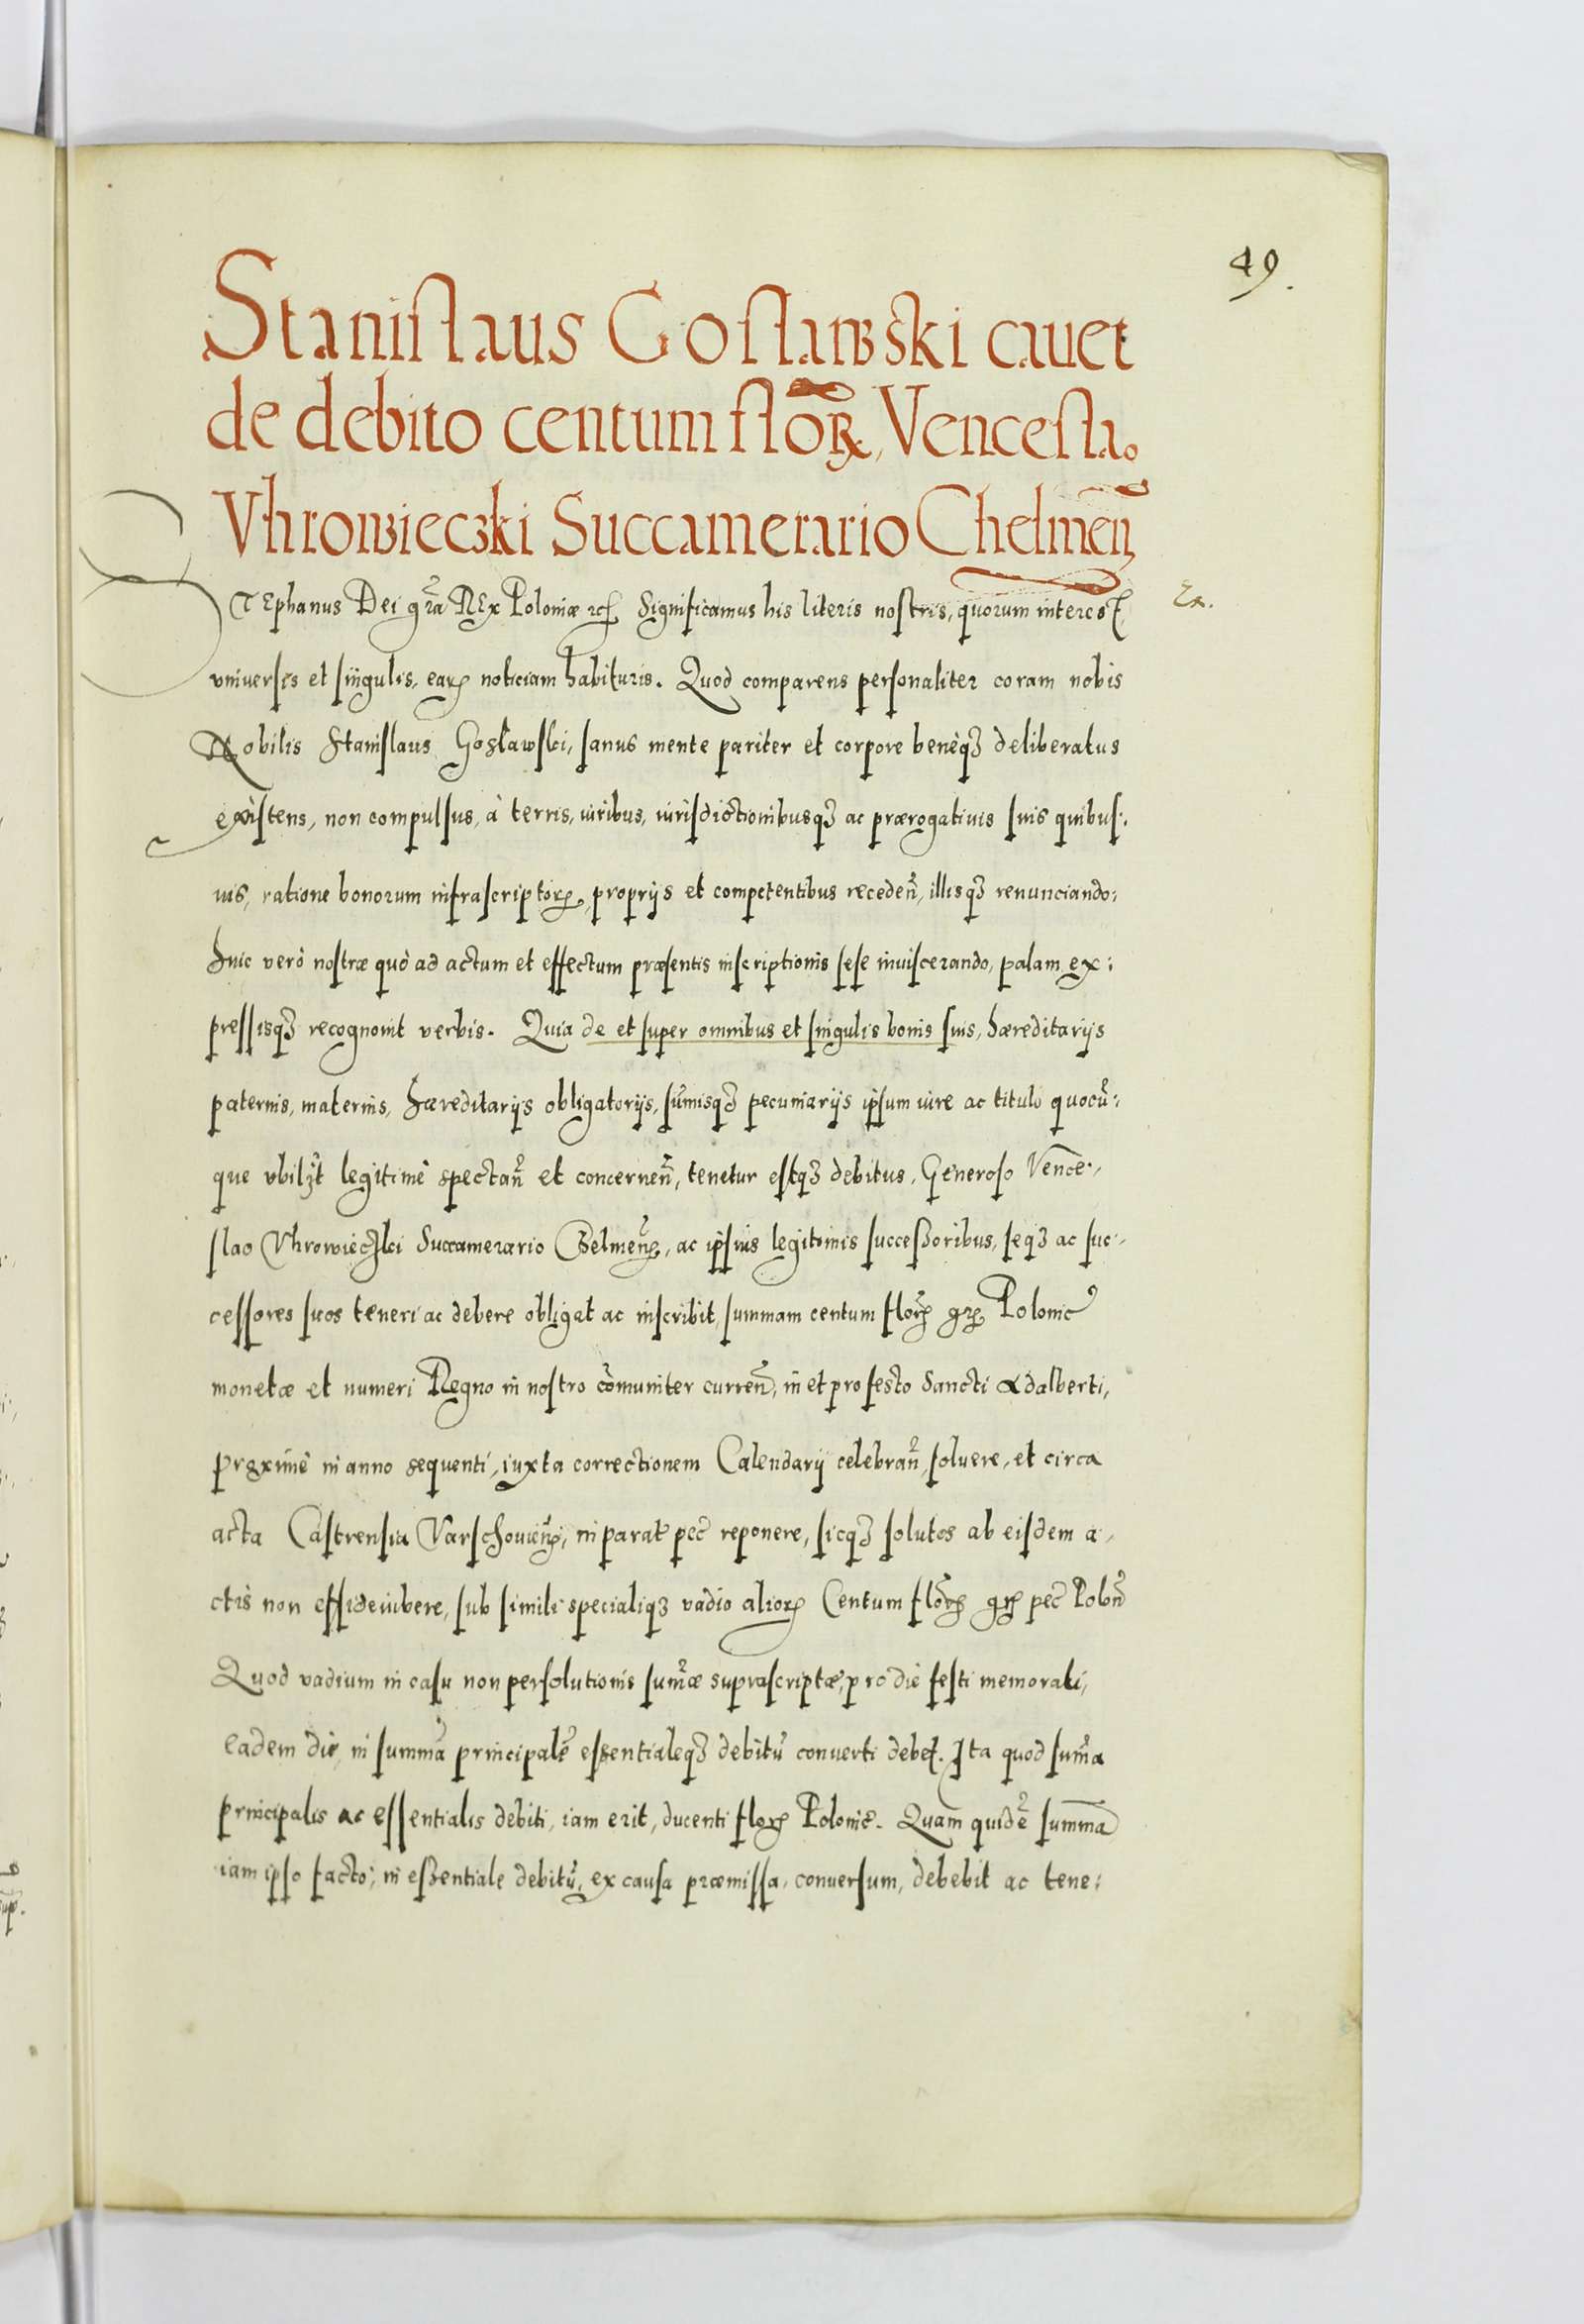 49.
Stanislaus Goslawski cauet
de debito centum florꝝ, Vencesla.
Vhrowieczki Succamerario Chelmeñ
STEphanus Dei gr̃a REx Poloniæ etc̃ Significamus his literis nostris, quorum interest,
Ex.
vniuersis et singulis, earꝝ noticiam habituris. Quod comparens personaliter coram nobis
Nobilis Stanislaus Goslawski, sanus mente pariter et corpore benèqꝫ deliberatus
existens, non compulsus, à terris, iuribus, iurisdictionibusqꝫ ac prærogatiuis suis quibus:
uis, ratione bonorum infrascriptorꝝ, proprijs et competentibus recedeñ, illisqꝫ renunciando:
huic verò nostræ quò ad actum et effectum præsentis inscriptionis sese inuiscerando, palam ex:
pressisqꝫ recognouit verbis. Quia de et super omnibus et singulis bonis suis, hæreditarijs
paternis, maternis, hæreditarijs obligatorijs, sum̃isqꝫ pecuniarijs ipsum iure ac titulo quocũ:
que vbilꝫt legitimè spectañ et concerneñ, tenetur estqꝫ debitus, Generoso Vence:
slao Vhrowieczki Succamerario Chelmeñ, ac ipsius legitimis successoribus, seqꝫ ac suc:
cessores suos teneri ac debere obligat ac inscribit, summam centum florꝝ grꝝ Polonic̃
monetæ et numeri Regno in nostro com̃uniter curreñ, in et pro festo Sancti Adalberti,
proximè in anno sequenti, iuxta correctionem Calendarij celebrañ, soluere, et circa
acta Castrensia Varschouieñ, in parat̃ pec̃ reponere, sicqꝫ solutos ab eisdem a:
ctis non effideiubere, sub simili specialiqꝫ vadio aliorꝝ Centum florꝝ grꝝ pec̃ Poloñ
Quod vadium in casu non persolutionis sum̃æ suprascriptæ, pro die festi memorati,
eadem die, in summã principalẽ essentialeqꝫ debitũ conuerti debet. Ita quod sum̃a
principalis ac essentialis debiti, iam erit, ducenti florꝝ Polonic̃. Quam quidẽ summã
iam ipso facto, in essentiale debitũ, ex causa præmissa, conuersum, debebit ac tene: